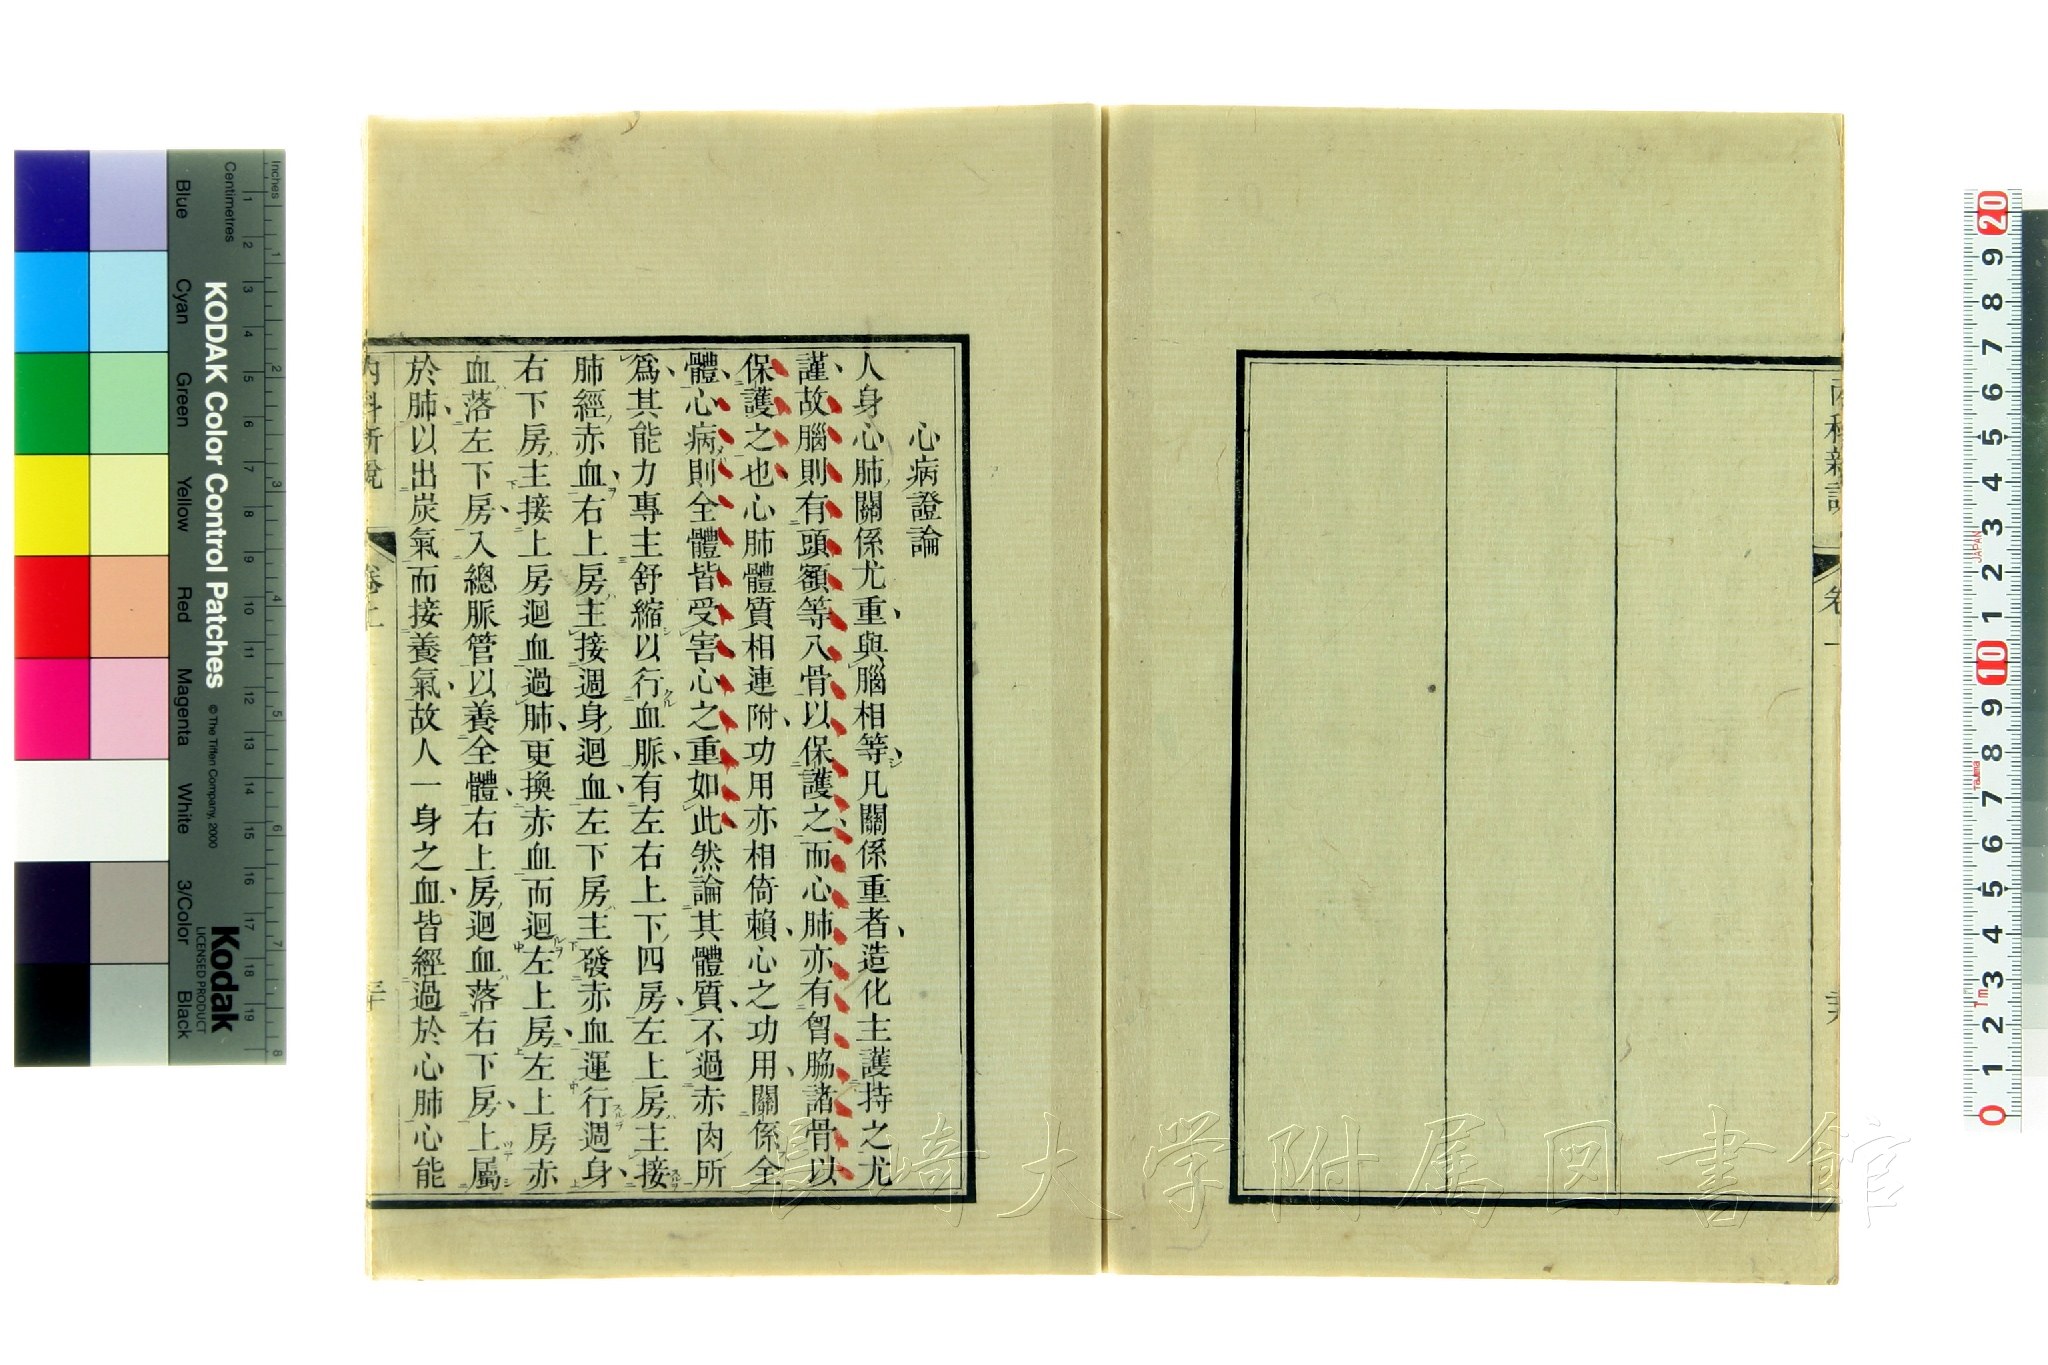 心病證論
人身心肺關係尤重與腦相等凡關係重者造化主護持之尤
謹故腦則有頭額等八骨以保護之而心肺亦有胷脇諸骨以
保護之也心肺體質相連附功用亦相倚賴心之功用關係全
體心病則全體皆受害心之重如此然論其體質不過赤肉所
爲其能力專主舒縮以行血脈有左右上下四房左上房主接
肺經赤血右上房主接週身迴血左下房主發赤血運行週身
右下房主接上房迴血過肺更換赤血而迴左上房左上房赤
血落左下房入總脈管以養全體右上房迴血落右下房上屬
於肺以出炭氣而接養氣故人一身之血皆經過於心肺心能
內科新說
卷上
三十
內科新說
卷
長崎大学附属図書館
Inches
Centimetres
KODAK Color Control Patches
© The Tiffen Company, 2000
Kodak
LICENSED PRODUCT
Blue
Cyan
Green
Yellow
Red
Magenta
White
3/Color
Black
1 2 3 4 5 6 7 8 9 10 11 12 13 14 15 16 17 18 19
1 2 3 4 5 6 7 8
20 9 8 7 6 5 4 3 2 1 10 9 8 7 6 5 4 3 2 1 0
JAPAN
Tajima